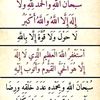 سُبْحَانَ اللَّهِ وَالْحَمْدُ لِلَّهِ وَلَا
إِلَهَ إِلَّا اللَّهُ وَاللَّهُ أَكْبَرُ
لَا حَوْلَ وَلَا قُوَّةَ إِلَّا بِاللَّهِ
أَسْتَغْفِرُ اللَّهَ الْعَظِيمَ الَّذِي لَا إِلَهَ
إِلَّا هُوَ الْحَيُّ الْقَيُّومُ وَأَتُوبُ إِلَيْهِ
سُبْحَانَ اللَّهِ وَبِحَمْدِهِ عَدَدَ خَلْقِهِ وَرِضَا